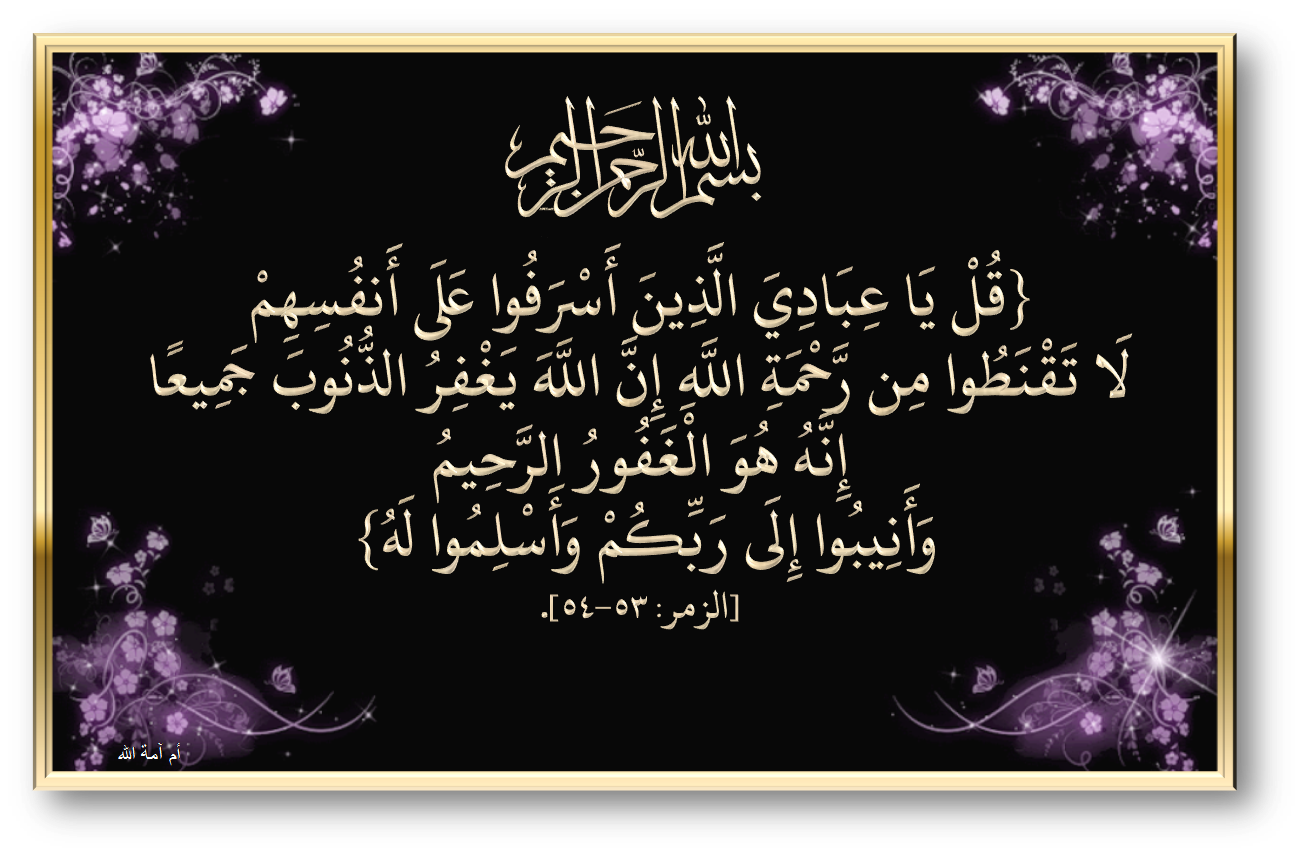 بسم الله الرحمن الرحيم
{قُلْ يَا عِبَادِيَ الَّذِينَ أَسْرَفُوا عَلَى أَنفُسِهِمْ
لَا تَقْنَطُوا مِن رَّحْمَةِ اللَّهِ إِنَّ اللَّهَ يَغْفِرُ الذُّنُوبَ جَمِيعًا
إِنَّهُ هُوَ الْغَفُورُ الرَّحِيمُ
وَأَنِيبُوا إِلَى رَبِّكُمْ وَأَسْلِمُوا لَهُ}
[الزمر: ٥٣-٥٤].
أم آمة الله